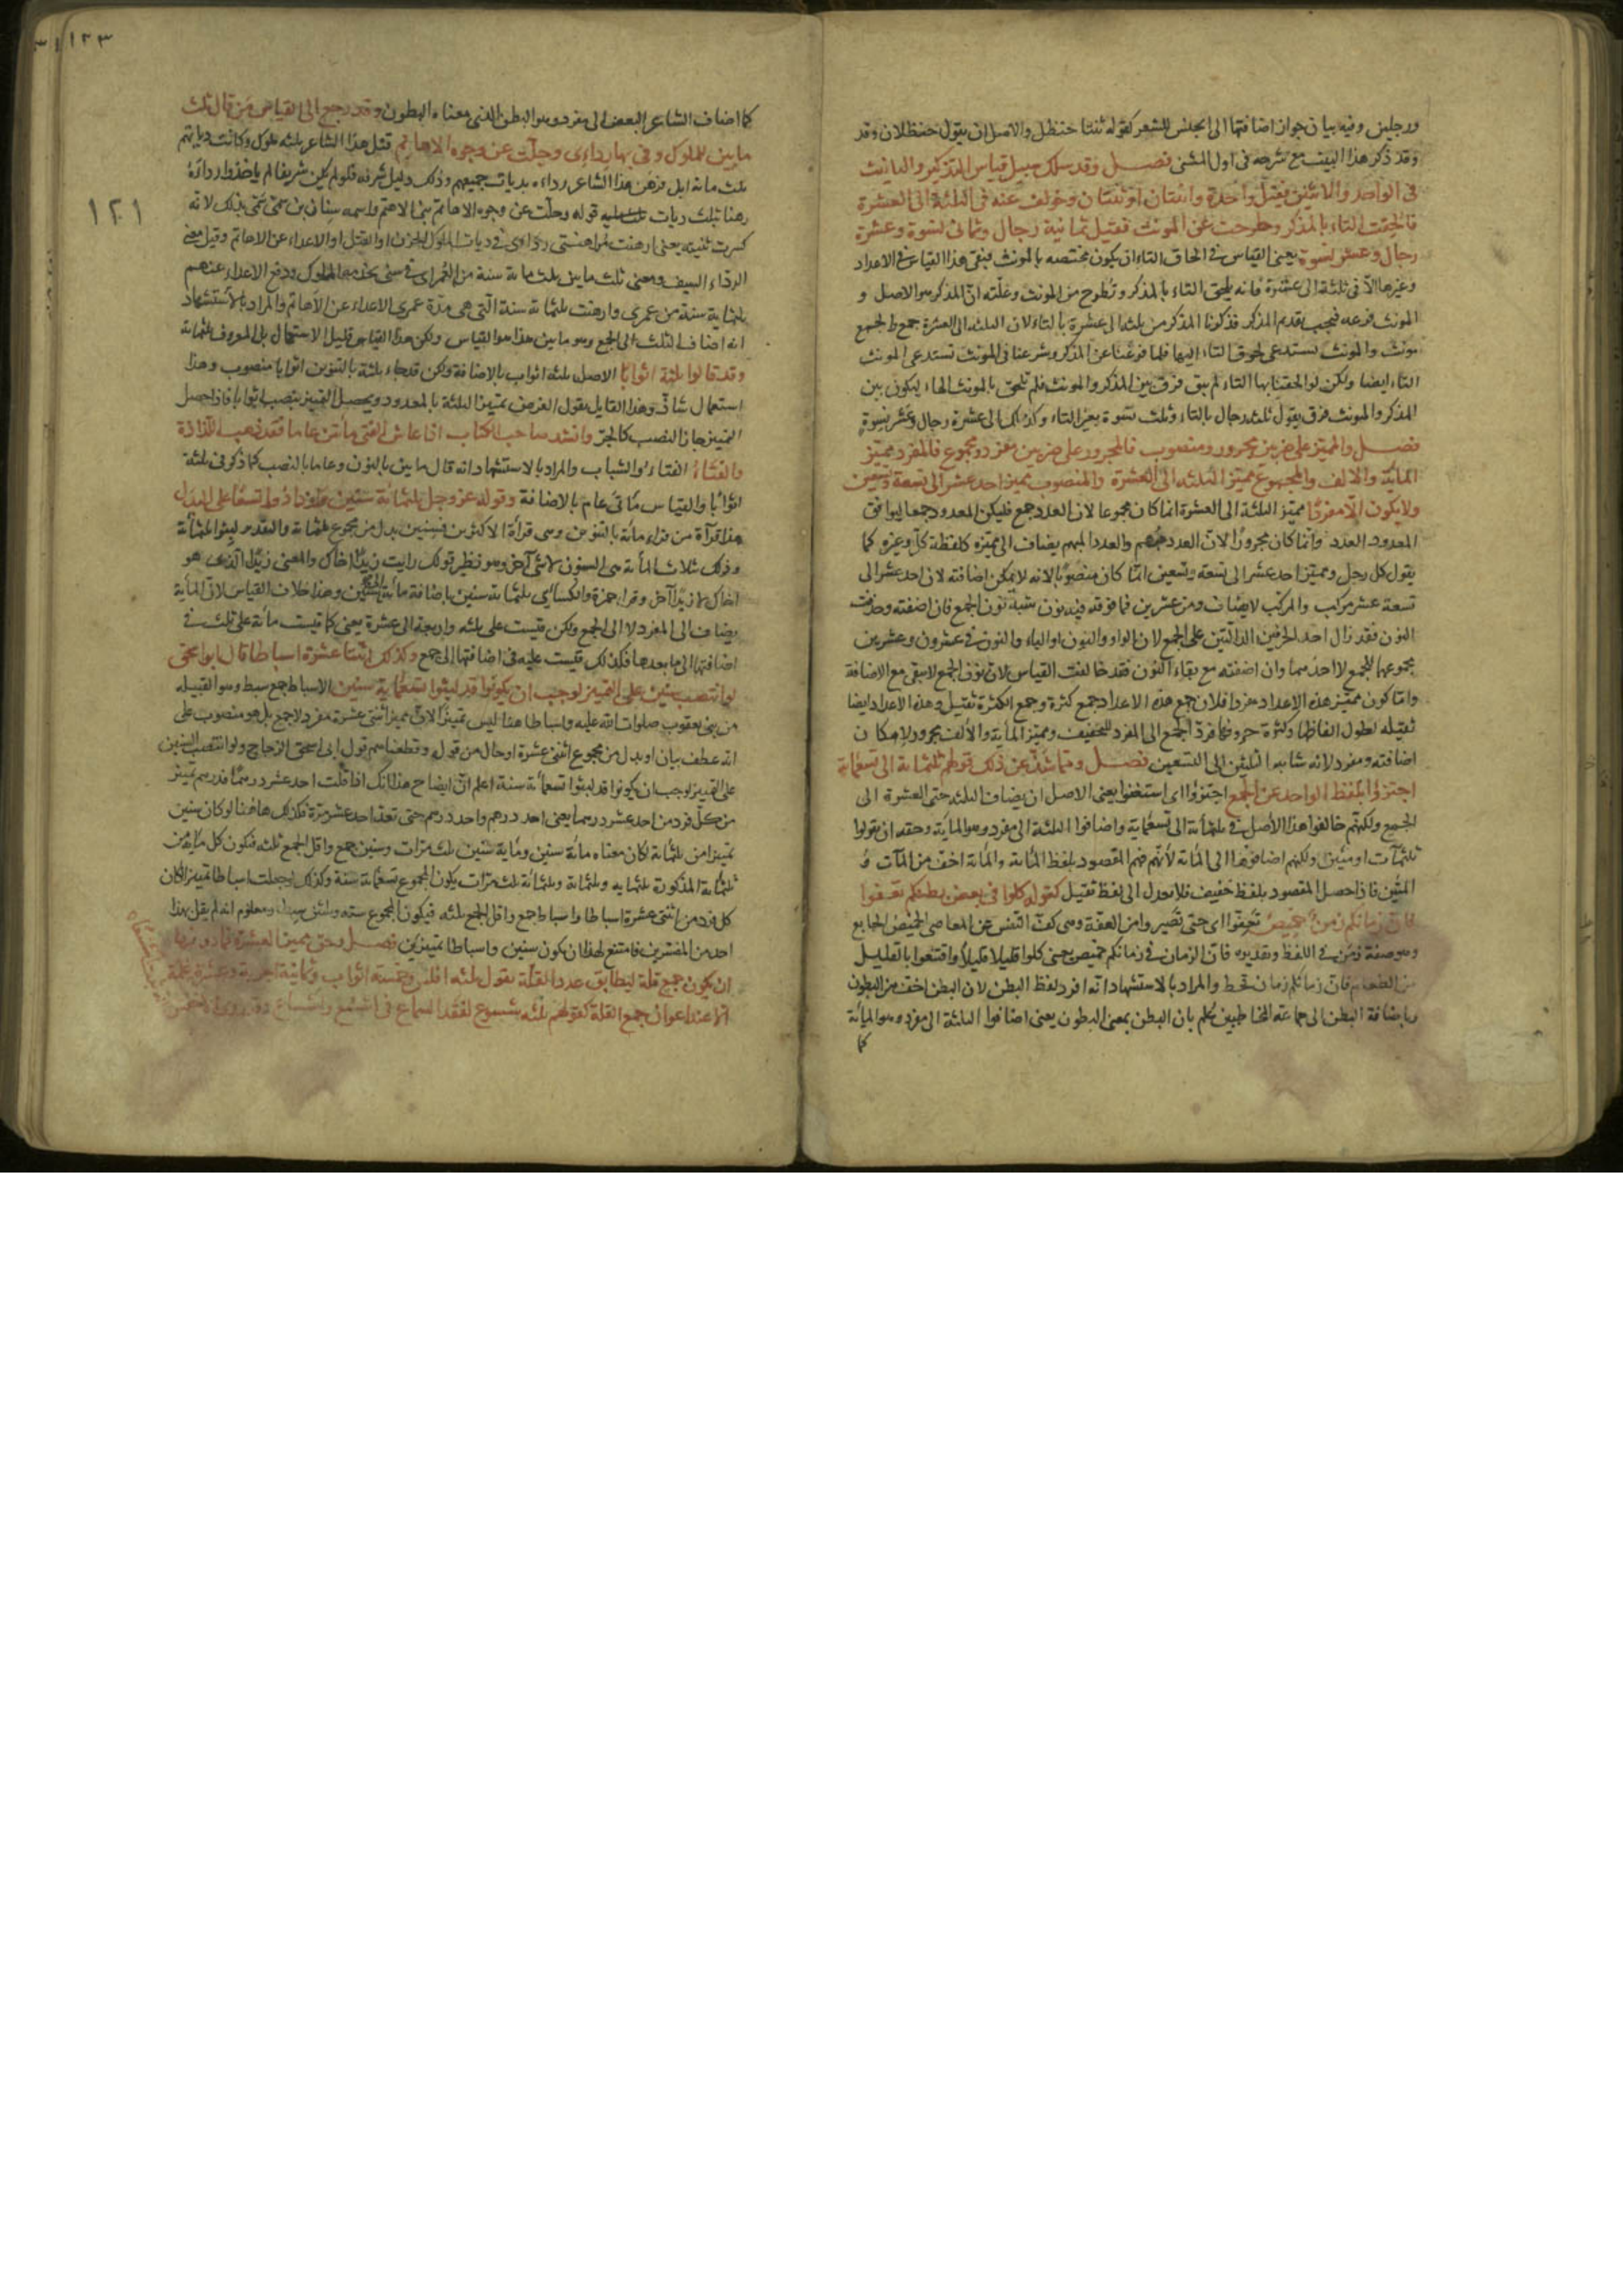 ورجلين وفيه بيان جواز اضافتها الى الجنس للشعر كقوله ثنتا حنظل والاصل ان يقول حنظلان وقد
وقد ذكر هذا البيت مع شرحه فى اول المثنى فصل وقد سلك سبيل قياس التذكير والتانيث
فى الواحد والاثنين فقيل واحدة واثنتان او ثنتان وخولف عنه فى الثلثة الى العشرة
فالحقت التاء بالمذكر وطرحت عن المونث فقيل ثمانية رجال وثمانى نسوة وعشرة
رجال وعشر نسوة يعنى القياس فى الحاق التاء ان يكون مختصه بالمونث فبقى هذا القياس فى الاعداد
وغيرها الا فى ثلثة الى عشرة فانه يلحق التاء بالمذكر وتطرح من المونث وعلته ان المذكر هو الاصل و
المونث فرعه فيجب تقديم المذكر فذكرنا المذكر من ثلثه الى عشرة بالتاء لان الثلثه الى العشرة جمع والجمع
مونث والمونث يستدعى لحوق التاء اليها فلما فرغنا عن المذكر وشرعنا فى المونث تستدعى المونث
التاء ايضا ولكن لو الحقنا بها التاء لم يبق فرق بين المذكر والمونث فلم تلحق بالمونث الهاء ليكون بين
المذكر والمونث فرق يقول ثلثه رجال بالتاء وثلث نسوة بغير التاء وكذلك الى عشرة رجال وعشر نسوة
فصل والمميز على ضربين مجرور ومنصوب فالمجرور على ضربين مفرد ومجموع فالمفرد مميز
المائة والالف والمجموع مميز الثلثه الى العشرة والمنصوب مميز احد عشر الى تسعة وتسعين
ولا يكون الا مفردا مميز الثلثة الى العشرة انما كان مجموعا لان العدد جمع فليكن المعدود جمعا ليوافق
المعدود العدد وانما كان مجرورا لان العدد مبهم والعدد المبهم يضاف الى مميزه كلفظة كل وغيره كما
يقول كل رجل ومميز احد عشر الى تسعة وتسعين انما كان منصوبا لانه لا يمكن اضافته لان احد عشر الى
تسعة عشر مركب والمركب لا يضاف ومن عشرين فما فوقه فيه نون شبه نون الجمع فان اضفته وحذفت
النون فقد زال احد الحرفين الدالتين على الجمع لان الواو والنون او الياء والنون فى عشرون وعشرين
مجموعهما للجمع لا احدهما وان اضفته مع بقاء النون فقد خالفت القياس لان نون الجمع لا يبقى مع الاضافة
وانما كون مميز هذه الاعداد مفردا فلان جمع هذه الاعداد جمع كثرة وجمع الكثرة ثقيل وهذه الاعداد ايضا
ثقيله لطول الفاظها وكثرة حروفها فرد الجمع الى المفرد للتخفيف ومميز المائة والالف مجرور لامكان
اضافته ومفرد لانه شابه الثلثين الى التسعين فصل ومما شذ عن ذلك قولهم ثلثمائة الى تسعمائة
اجتزؤا بلفظ الواحد عن الجمع اجتزؤا اى استغنوا يعنى الاصل ان يضاف الثلثه حتى العشرة الى
الجمع ولكنهم خالفوا هذا الاصل فى ثلثمائة الى تسعمائة واضافوا الثلثة الى مفرد وهو المائة وحقه ان يقولوا
ثلثمآت او مئين ولكنهم اضافوها الى المائة لانهم فهم المقصود بلفظ المائة والمائة اخف من المآت و
المئين فاذا حصل المقصود بلفظ خفيف فلا يعدل الى لفظ ثقيل كقوله كلوا فى بعض بطنكم تعفوا
فان زمانكم زمن خميص تعفوا اى حتى تصير وامن العفة وهى كف النفس عن المعاصى الخميص الجايع
وهو صفة زمن فى اللفظ وتقديره فان الزمان فى زمانكم خميص يعنى كلوا قليلا قليلا واقنعوا بالقليل
من الطعام فان زمانكم زمان قحط والمراد بالاستشهاد انه افرد لفظ البطن لان البطن اخف من البطون
وباضافة البطن الى جماعة المخاطبين يعلم بان البطن بمعنى البطون يعنى اضافوا الثلثة الى مفرد وهو المائة
كما
١٢٣
١٢١
كما اضاف الشاعر البعض الى مفرد وهو البطن الذى معناه البطون وقد رجع الى القياس من قال ثلث
مايين للملوك وفى بها ردائى وجلت عن وجوه الاهاتم قتل هذا الشاعر ثلثه ملوك وكانت دياتهم
ثلث مائة ابل فرهن هذا الشاعر رداءه بديات جميعهم وذلك دليل شرفه فلو لم يكن شريفا لم ياخذوا رداءه
رهنا بثلث ديات قوله وجلت عن وجوه الاهاتم بنى الاهتم واسمه سنان بن سمى سمى بذلك لانه
كسرت ثنيته يعنى ارهنت لراهنتى ردائى فى ديات الملوك الحزن او القتل او الاعداء عن الاهاتم وقيل معنى
الرداء السيف ومعنى ثلث مايين ثلث مائة سنة من العمر اى فى سنى خدمة الملوك ودفع الاعداء عنهم
ثلثمائة سنة من عمرى وارهنت ثلثمائة سنة التى هى مدة عمرى الاعداء عن الاهاتم والمراد بالاستشهاد
انه اضاف الثلث الى الجمع وهو مايين هذا هو القياس ولكن هذا القياس قليل الاستعمال بل المعروف ثلثمائة
وقد قالوا ثلثة اثوابا الاصل ثلثه اثواب بالاضافة ولكن قد جاء ثلثة بالتنوين اثوابا منصوب وهذا
استعمال شاذ وهذا القايل يقول الغرض تمييز الثلثة بالمعدود ويحصل التمييز بنصب اثوابا فاذا حصل
التمييز جاز النصب كالجر وانشد صاحب الكتاب اذا عاش الفتى مائتين عاما فقد ذهب اللذاذة
والفتاء الفتاء الشباب والمراد بالاستشهاد انه قال مايين بالنون وعاما بالنصب كما ذكر فى ثلثة
اثوابا والقياس مائتى عام بالاضافة وقوله عز وجل ثلثمائة سنين وازدادوا تسعا على البدل
هذا قراءة من قراء مائة بالتنوين وهى قراءة الاكثرين فسنين بدل من مجموع ثلثمائة والتقدير لبثوا ثلثمائة
وذلك ثلاث المأة هى السنون لا شئ آخر وهو نظير قولك رايت زيدا اخاك والمعنى زيدا الذى هو
اخاك لا زيدا آخر وقراء حمزة والكسائى ثلثمائة سنين باضافة مائة الى سنين وهذا خلاف القياس لان المائة
يضاف الى المفرد لا الى الجمع ولكن قيست على ثلثه واربعة الى عشرة يعنى كما قيست مائة على ثلث فى
اضافتها الى ما بعدها فكذلك قيست عليه فى اضافتها الى جمع وكذلك اثنتا عشرة اسباطا قال ابو اسحق
لو انتصب سنين على التمييز لوجب ان يكونوا قد لبثوا تسعمائة سنين الاسباط جمع سبط وهو القبيله
من بنى يعقوب صلوات الله عليه واسباطا هذا ليس تمييزا لان مميز اثنتى عشرة مفرد لا جمع بل هو منصوب على
انه عطف بيان او بدل من مجموع اثنتى عشرة او حال من قول وقطعناهم قول ابى اسحق الزجاج ولو انتصب السنين
على التمييز لوجب ان يكونوا قد لبثوا تسعمائة سنة اعلم ان ايضاح هذا انك اذا قلت احد عشر درهما فدرهم تمييز
من كل فرد من احد عشر درهما يعنى احد درهم واحد درهم حتى تعد احد عشر مرة فكذلك هاهنا لو كان سنين
تمييزا من ثلثمائة لكان معناه مائة سنين ومائة سنين ثلث مرات وسنين جمع واقل الجمع ثلثه فتكون كل مائة من
ثلثمائة المذكورة ثلثمايه وثلثمائة وثلثمائة ثلث مرات يكون المجموع تسعمائة سنة وكذلك لو جعلت اسباطا تمييزا لكان
كل فرد من اثنتى عشرة اسباطا واسباط جمع واقل الجمع ثلثه فيكون المجموع سته وثلثين سبطا ومعلوم انه لم يقل بهذا
احد من المفسرين فامتنع لهذا ان يكون سنين واسباطا تمييزين فصل وحق مميز العشرة فما دونها
ان يكون جمع قلة ليطابق عدد القلة يقول ثلثه افلس وخمسة اثواب وثمانية اجربة وعشرة غلمة
الا عند اعواز جمع القلة كقولهم ثلثه شسوع لفقد السماع فى اشسع واشساع وقد روى الاخفش